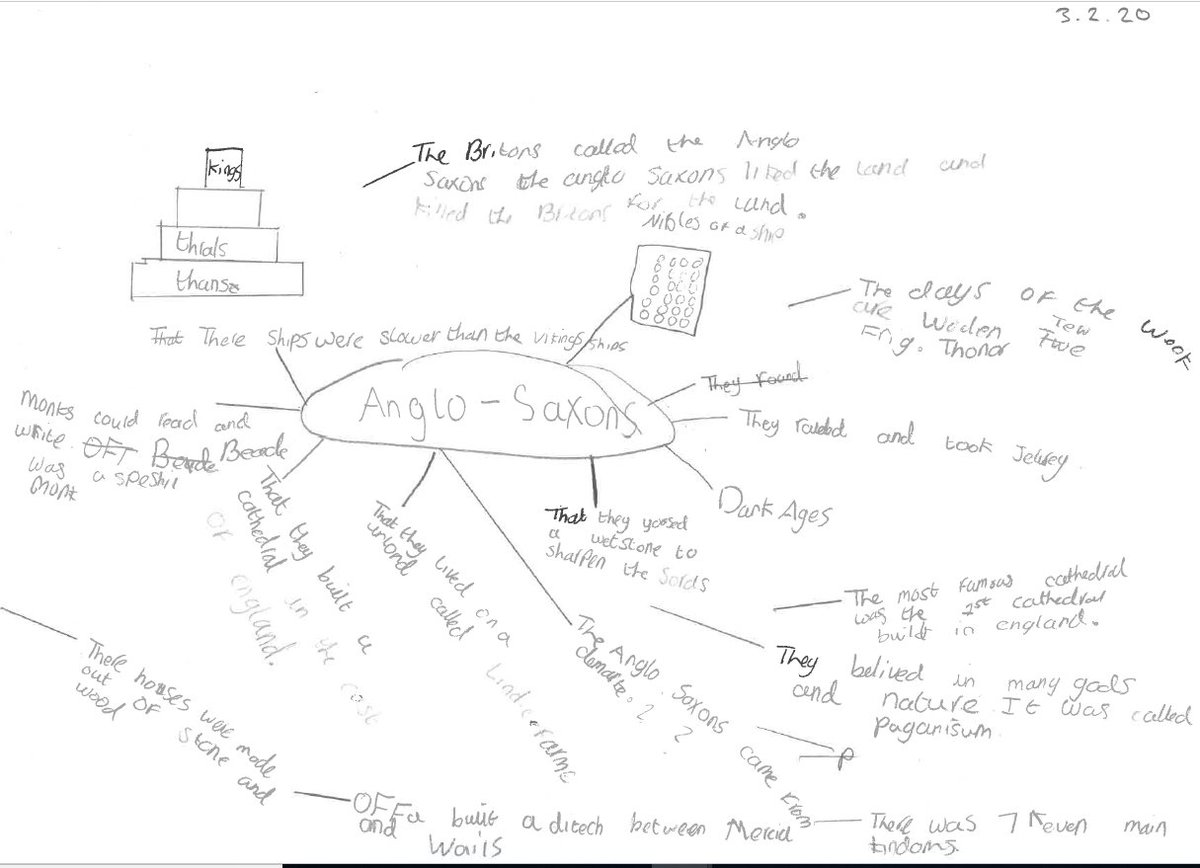 3.2.20
kings
thials
thans
The Britons called the Anglo
Saxons the anglo Saxons liked the land and
killed the Britons for the land.
Nibles of a ship
The days of the week
are Woden Tew
Frig. Thonor
That There ships were slower than the vikings ships
Anglo-Saxons
They found
They raided and took Jewrey.
Monks could read and
write. OFT Beade Beade
was a speshil
Monk
Dark Ages
That they built a
cathedral in the cost
of england.
That they lived on a
inlond called Lindesfarme
That they yoosed
a wetstone to
sharpen the Sords
The most famous cathedral
was the 1st cathedral
buildt in england.
They belived in many gods
and nature It was called
paganisum.
The Anglo Saxons came from
demarke??
?
P
There houses were made
out of stone and
wood
OFFa built a ditech between Mercia
and Wails
There was 7 even main
kindoms.